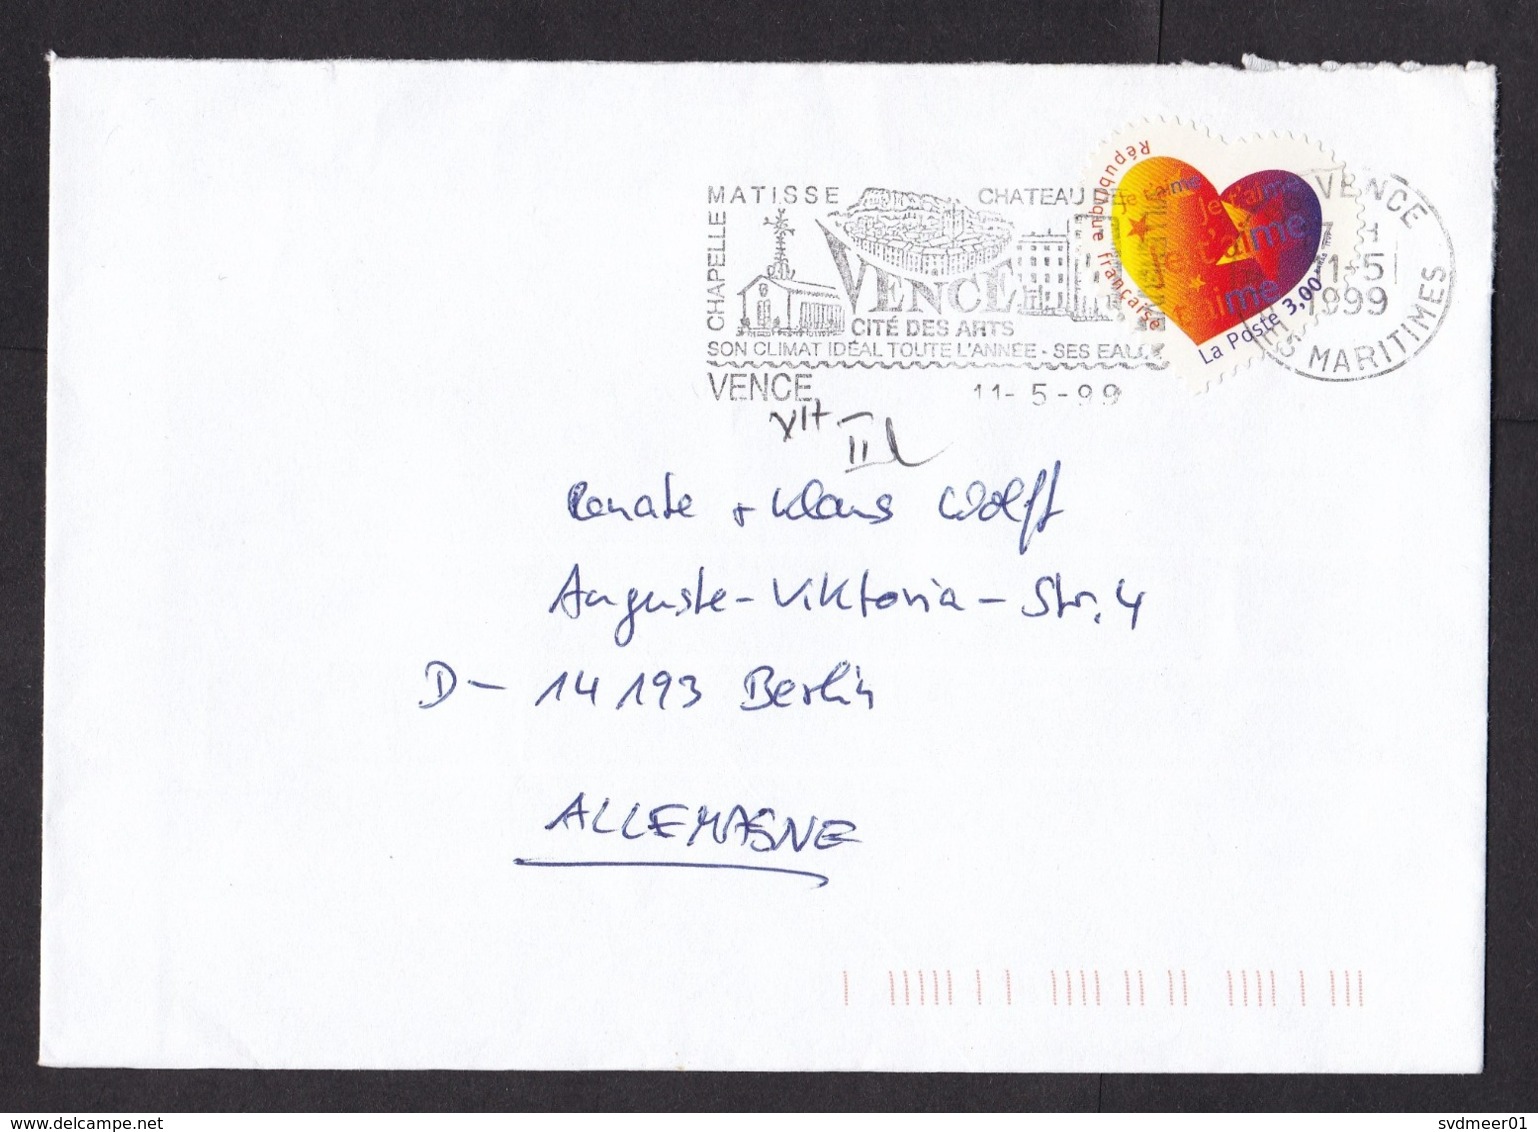 MATISSE
CHATEAU DE
CHAPELLE
VENCE
CITÉ DES ARTS
SON CLIMAT IDÉAL TOUTE L'ANNÉE - SES EAUX
VENCE 11-5-99
République française
Je t'aime
Je t'aime
Je t'aime
t'aime
La Poste 3,00
VENCE
1999
MARITIMES
Renate + Klaus Wolff
Auguste-Viktoria-Str. 4
D-14193 Berlin
ALLEMAGNE
www.delcampe.net
svdmeer01